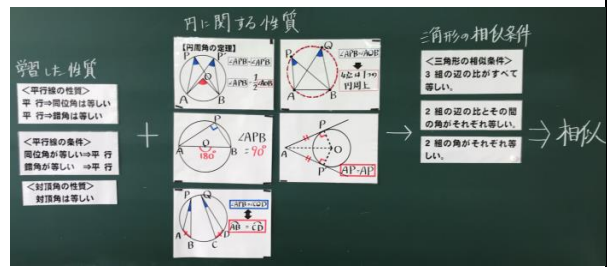 円に関する性質
学習した性質
<平行線の性質>
平 行⇒同位角は等しい
平 行⇒錯角は等しい
<平行線の条件>
同位角が等しい⇒平 行
錯角が等しい ⇒平 行
<対頂角の性質>
対頂角は等しい
+
【円周角の定理】
P P'
∠APB=∠AP'B
∠APB=1/2∠AOB
O
A B
P Q
∠APB=∠AQB
4点は1つの
円周上
A B
P
∠APB
=90°
A O B
180°
P
A O
P'
AP=AP'
P Q
∠APB=∠CQD
A B C D
AB=CD
三角形の相似条件
<三角形の相似条件>
3 組の辺の比がすべて
等しい。
2 組の辺の比とその間
の角がそれぞれ等しい。
2 組の角がそれぞれ等
しい。
→
⇒相似